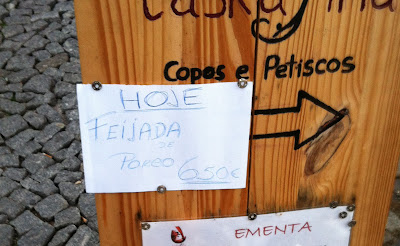 Copos e Petiscos
HOJE
FEIJADA
DE
PORCO 6.50€
EMENTA